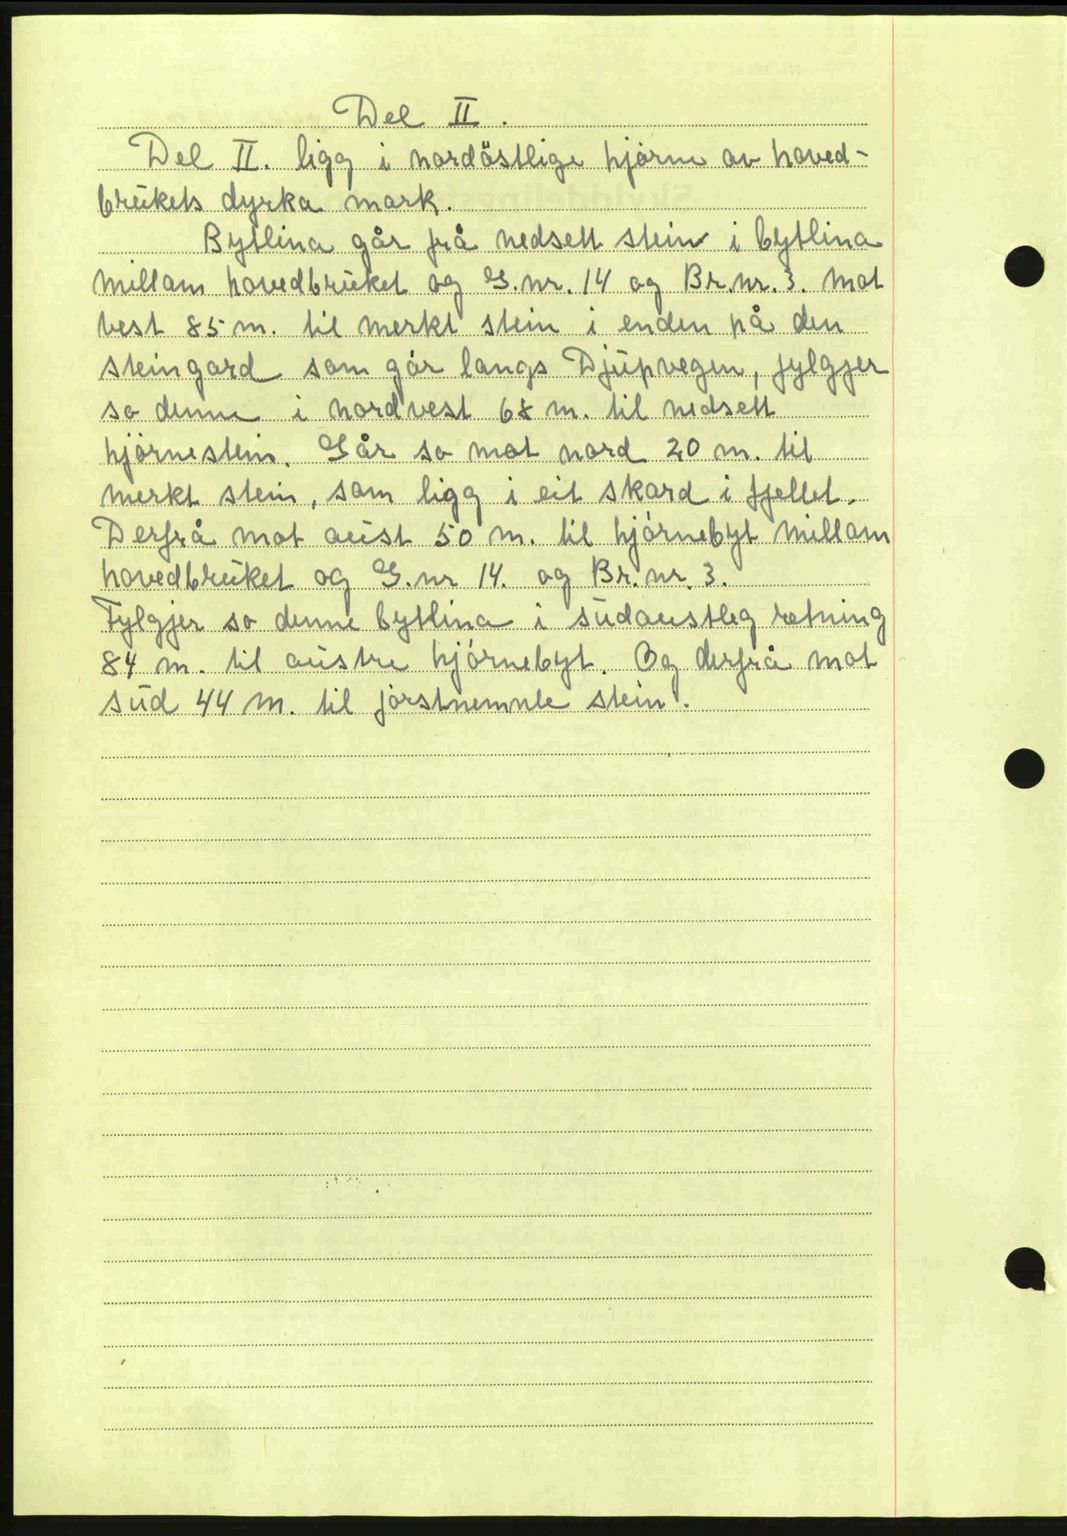 Del II.
Del II. ligg i nordöstlige hjørne av hoved-
brukets dyrka mark.
Bytlina går frå nedsett stein i bytlina
millam hovedbruket og G.nr. 14 og Br.nr. 3. mot
vest 85 m. til merkt stein i enden på den
steingard som går langs Djupvegen, fylgjer
so denne i nordvest 68 m. til nedsett
hjørnestein. Går so mot nord 20 m. til
merkt stein, som ligg i eit skard i fjellet.
Derfrå mot aust 50 m. til hjørnebyt millam
hovedbruket og G.nr 14. og Br.nr. 3.
Fylgjer so denne bytlina i südaustleg retning
84 m. til austre hjørnebyt. Og derfrå mot
süd 44 m. til førstnemnte stein.